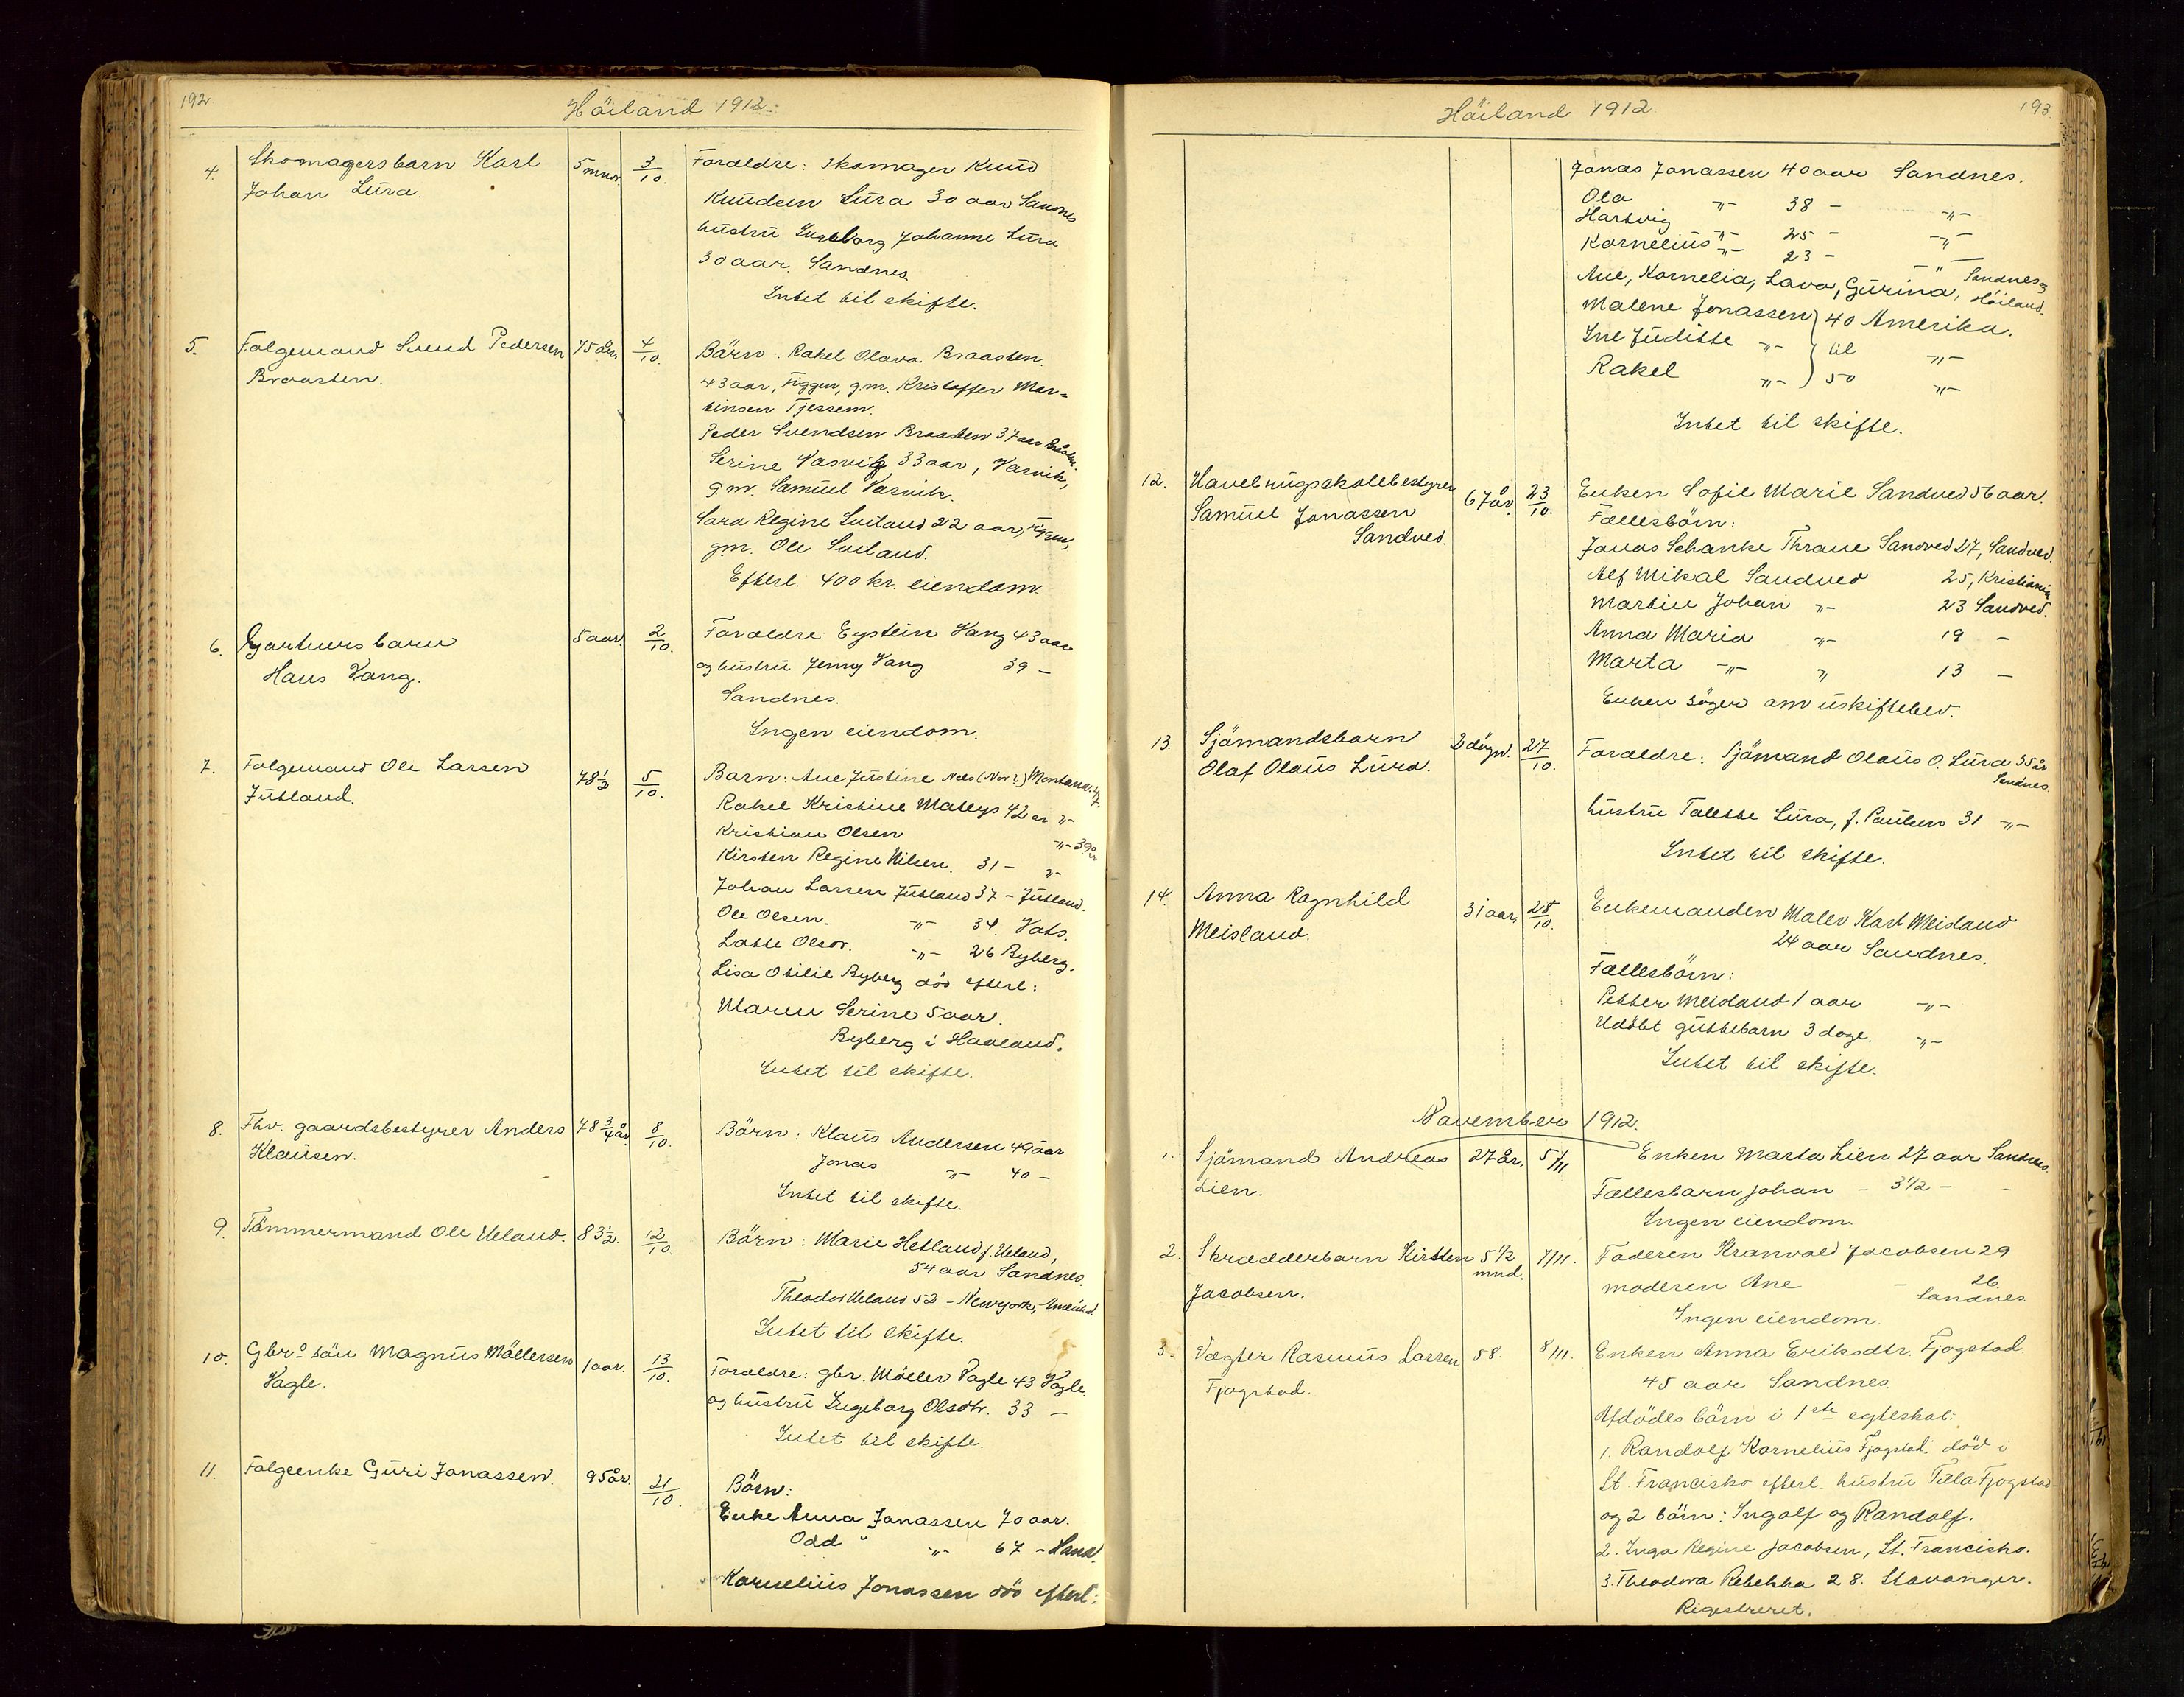 192
Höiland 1912.
4. Skomagersbarn Karl 5 mndr. 3/10. Foræeldre: skomager Knud
Johan Lura. Knudsen Lura 30 aar Sandnes
hustru Ingeborg Johanne Lura
30 aar. Sandnes.
Intet til skifte.
5. Folgemand Svend Pedersen 75 år 4/10. Börn: Rakel Olava Braasten.
Braasten. 43 aar, Figgen, g.m. Kristoffer Mar-
tinsen Tjessem.
Peder Svendsen Braasten 37 aar
Serine Vasvik 33 aar, Vasvik,
g.m. Samuel Vasvik.
Sara Regine Suiland 22 aar, Figgen,
g.m. Ole Suiland.
Efterl. 400 kr. eiendom.
6. Gartnersbarn 5 aar. 2/10. Foræeldre Eystein Vang 43 aar
Hans Vang. og hustru Jenny Vang 39 -
Sandnes.
Ingen eiendom.
7. Folgemand Ole Larsen 78 1/2 5/10. Barn: Ane Justine Nees (Nor?) Montana.
Jutland. Rakel Kristine Matleys 42 år -"-
Kristian Olsen -"- 39 år
Kirsten Regine Nilsen. 31 - -"-
Johan Larsen Jutland 37 - Jutland.
Ole Olsen. -"- 34. Vats.
Latte Olsdr. -"- 26 Byberg.
Lisa Otilie Byberg död efterl:
Maren Serine 5 aar.
Byberg i Haaland.
Intet til skifte.
8. Fhv. gaardsbestyrer Anders 78 3/4 år. 8/10. Börn: Klaus Andersen 49 aar
Klausen. Jonas -"- 40 -
Intet til skifte.
9. Tömmermand Ole Ueland. 83 1/2. 12/10. Börn: Marie Hetland f. Ueland,
54 aar Sandnes.
Theodor Ueland 52 - Newyork,
Intet til skifte.
10. Gbr⁰ sön Magnus Möllersen 1 aar. 13/10. Foræeldre: gbr. Möller Vagle 43 Vagle.
Vagle. og hustru Ingeborg Olsdtr. 33 -
Intet til skifte.
11. Folgeenke Guri Jonassen. 95 år. 21/10. Börn:
Enke Anna Jonassen 70 aar.
Odd " -"- 67 - Sand.
Kornelius Jonassen död efterl:
193.
Höiland 1912
Jonas Jonassen 40 aar Sandnes.
Ola -"- 38 - -"-
Hartvig -"- 25 - -"-
Kornelius -"- 23 - -"-
Ane, Kornelia, Lava, Gurina, Sandnes og Höiland.
Malene Jonassen } 40 Amerika.
Ine Juditte -"- } til -"-
Rakel -"- } 50 -"-
Intet til skifte.
12. Havebrugsskolebestyrer 67 år. 23/10. Enken Sofie Marie Sandved 56 aar.
Samuel Jonassen Fællesbörn:
Sandved. Jonas Schanke Thrane Sandved 27, Sandved.
Alf Mikal Sandved 25, Kristiania
Martin Johan -"- 23 Sandved.
Anna Maria -"- 19 -
Marta -"- " 13 -
Enken söger om uskiftebev.
13. Sjömandsbarn 2 dögn. 27/10. Foræeldre: Sjömand Olaus O. Lura 35 år
Olaf Olaus Lura. Sandnes.
hustru Talette Lura, f. Paulsen 31 -"-
Intet til skifte.
14. Anna Ragnhild 31 aar. 28/10. Enkemanden Maler Karl Meisland
Meisland. 24 aar Sandnes.
Fællesbörn:
Petter Meisland 1 aar -"-
Udöbt guttebarn 3 dage. -"-
Intet til skifte.
November 1912.
1. Sjömand Andreas 27 år. 5/11 Enken Marta Lien 27 aar Sandnes.
Lien. Fællesbarn Johan - 3 1/2 - -
Ingen eiendom.
2. Skrædderbarn Kirsten 5 1/2 mnd. 7/11. Faderen Kranvald Jacobsen 29
Jacobsen. moderen Ane - 26
Sandnes.
Ingen eiendom.
3. Vægter Rasmus Larsen 58. 8/11. Enken Anna Eriksdtr. Fjogstad.
Fjogstad. 45 aar Sandnes.
Afdödes börn i 1ste egteskab:
1. Randolf Kornelius Fjogstad. död i
St. Francisko efterl. hustru Tilla Fjogstad
og 2 börn: Ingolf og Randolf.
2. Inga Regine Jacobsen, St. Francisko.
3. Theodora Rebekka 28. Stavanger.
Rigestreret.